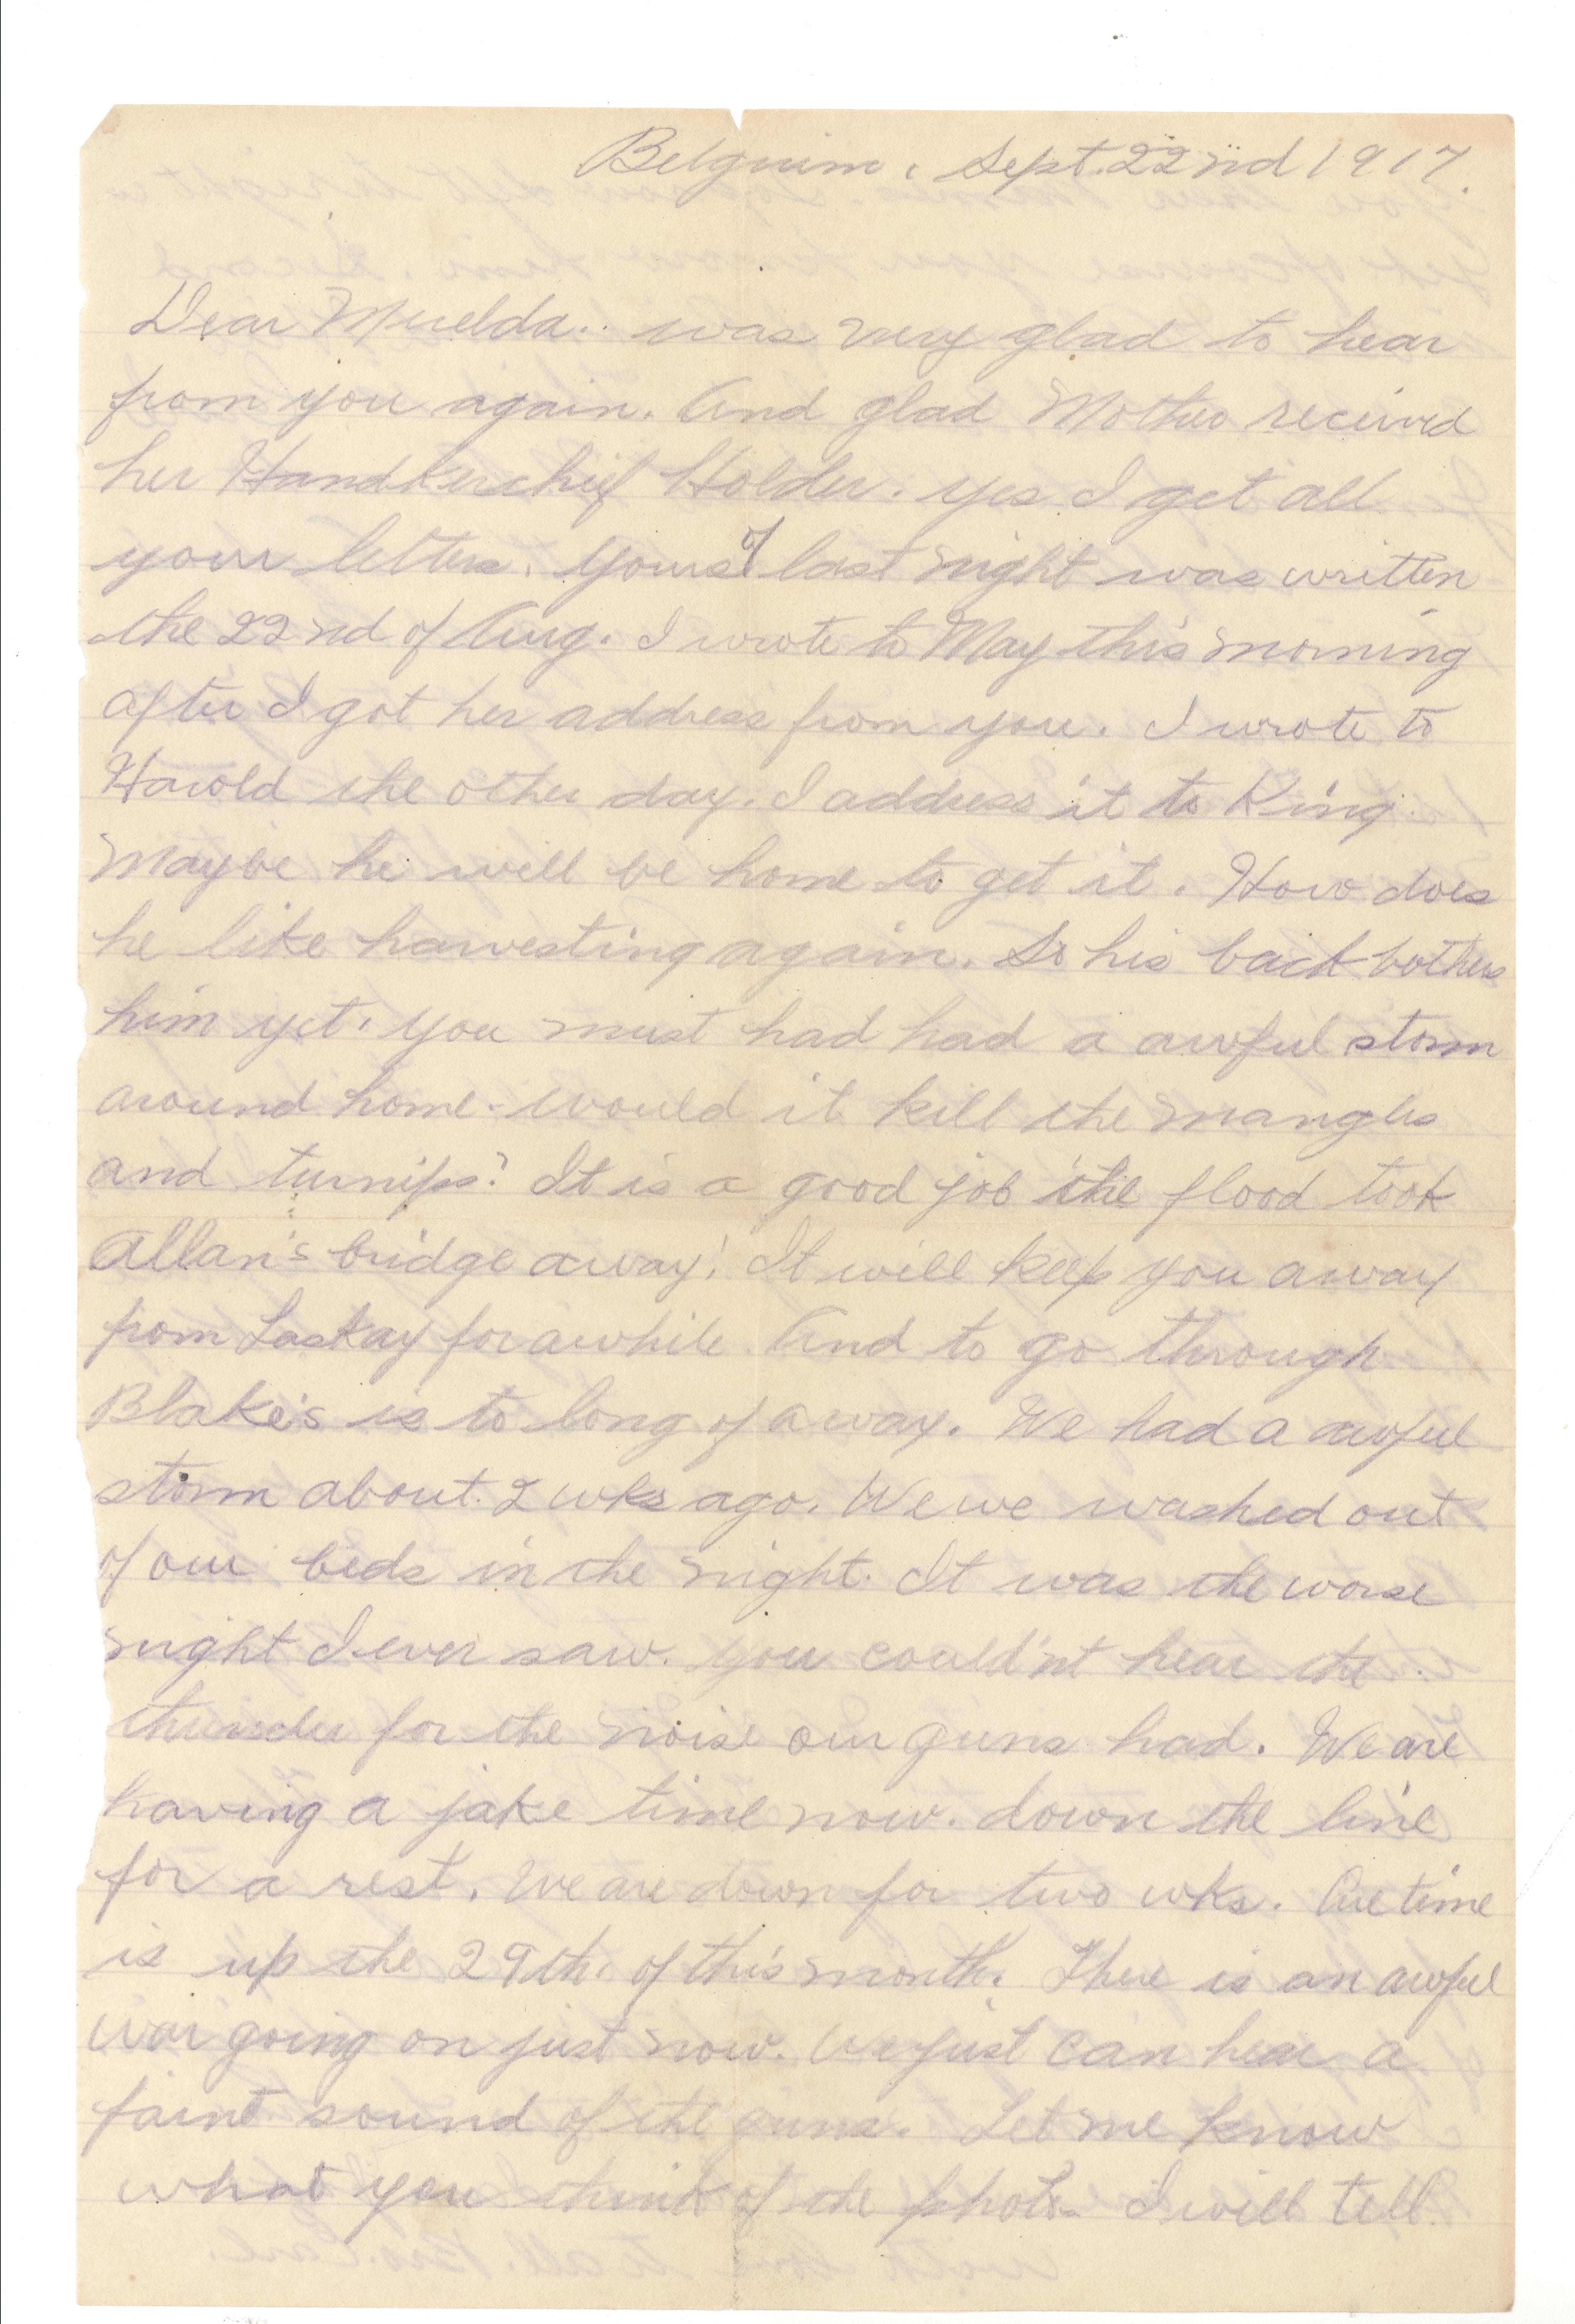 Belguim, Sept. 22nd 1917.
Dear Muelda.. was very glad to hear
from you again. And glad Mother received
her Handkerchief Holder. yes I get all
your letters. Yours of last night was written
the 22nd of Aug. I wrote to May this morning
after I got her address from you. I wrote to
Harold the other day. I address it to King.
Maybe he will be home to get it. How does
he like harvesting again. So his back bothers
him yet. you must had had a awful storm
around home. would it kill the mangles
and turnips? It is a good job the flood took
Allan's bridge away! It will keep you away
from Laskay for awhile. And to go through
Blake's is to long of a way. We had a awful
storm about. 2 wks ago. We we washed out
of our beds in the night. It was the worse
night I ever saw. you could'nt hear the
thunder for the noise our guns had. We are
having a jake time now. down the line
for a rest. We are down for two wks. Our time
is up the 29th. of this month. There is an awful
war going on just now. We just can hear a
faint sound of the guns. Let me know
what you think of the photo. I will tell